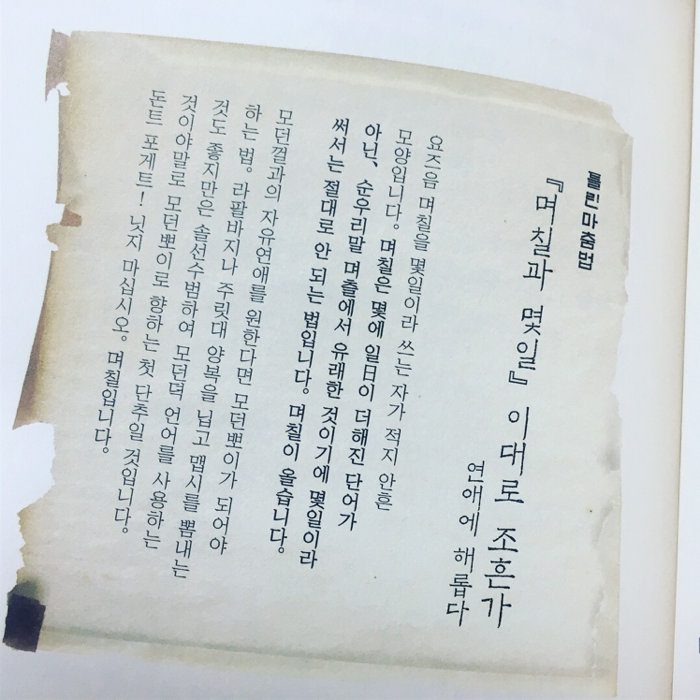 틀린마춤법
『며칠과 몇일』 이대로 조흔가
연애에 해롭다
요즈음 며칠을 몇일이라 쓰는 자가 적지 안흔
모양입니다。 며칠은 몇에 일日이 더해진 단어가
아닌、 순우리말 며츨에서 유래한 것이기에 몇일이라
써서는 절대로 안 되는 법입니다。 며칠이 올습니다。
모던껄과의 자유연애를 원한다면 모던뽀이가 되어야
하는 법。 라팔바지나 주릿대 양복을 닙고 맵시를 뽐내는
것도 좋지만은 솔선수범하여 모던뎍 언어를 사용하는
것이야말로 모던뽀이로 향하는 첫 단추일 것입니다。
돈트 포게트! 닛지 마십시오。 며칠입니다。